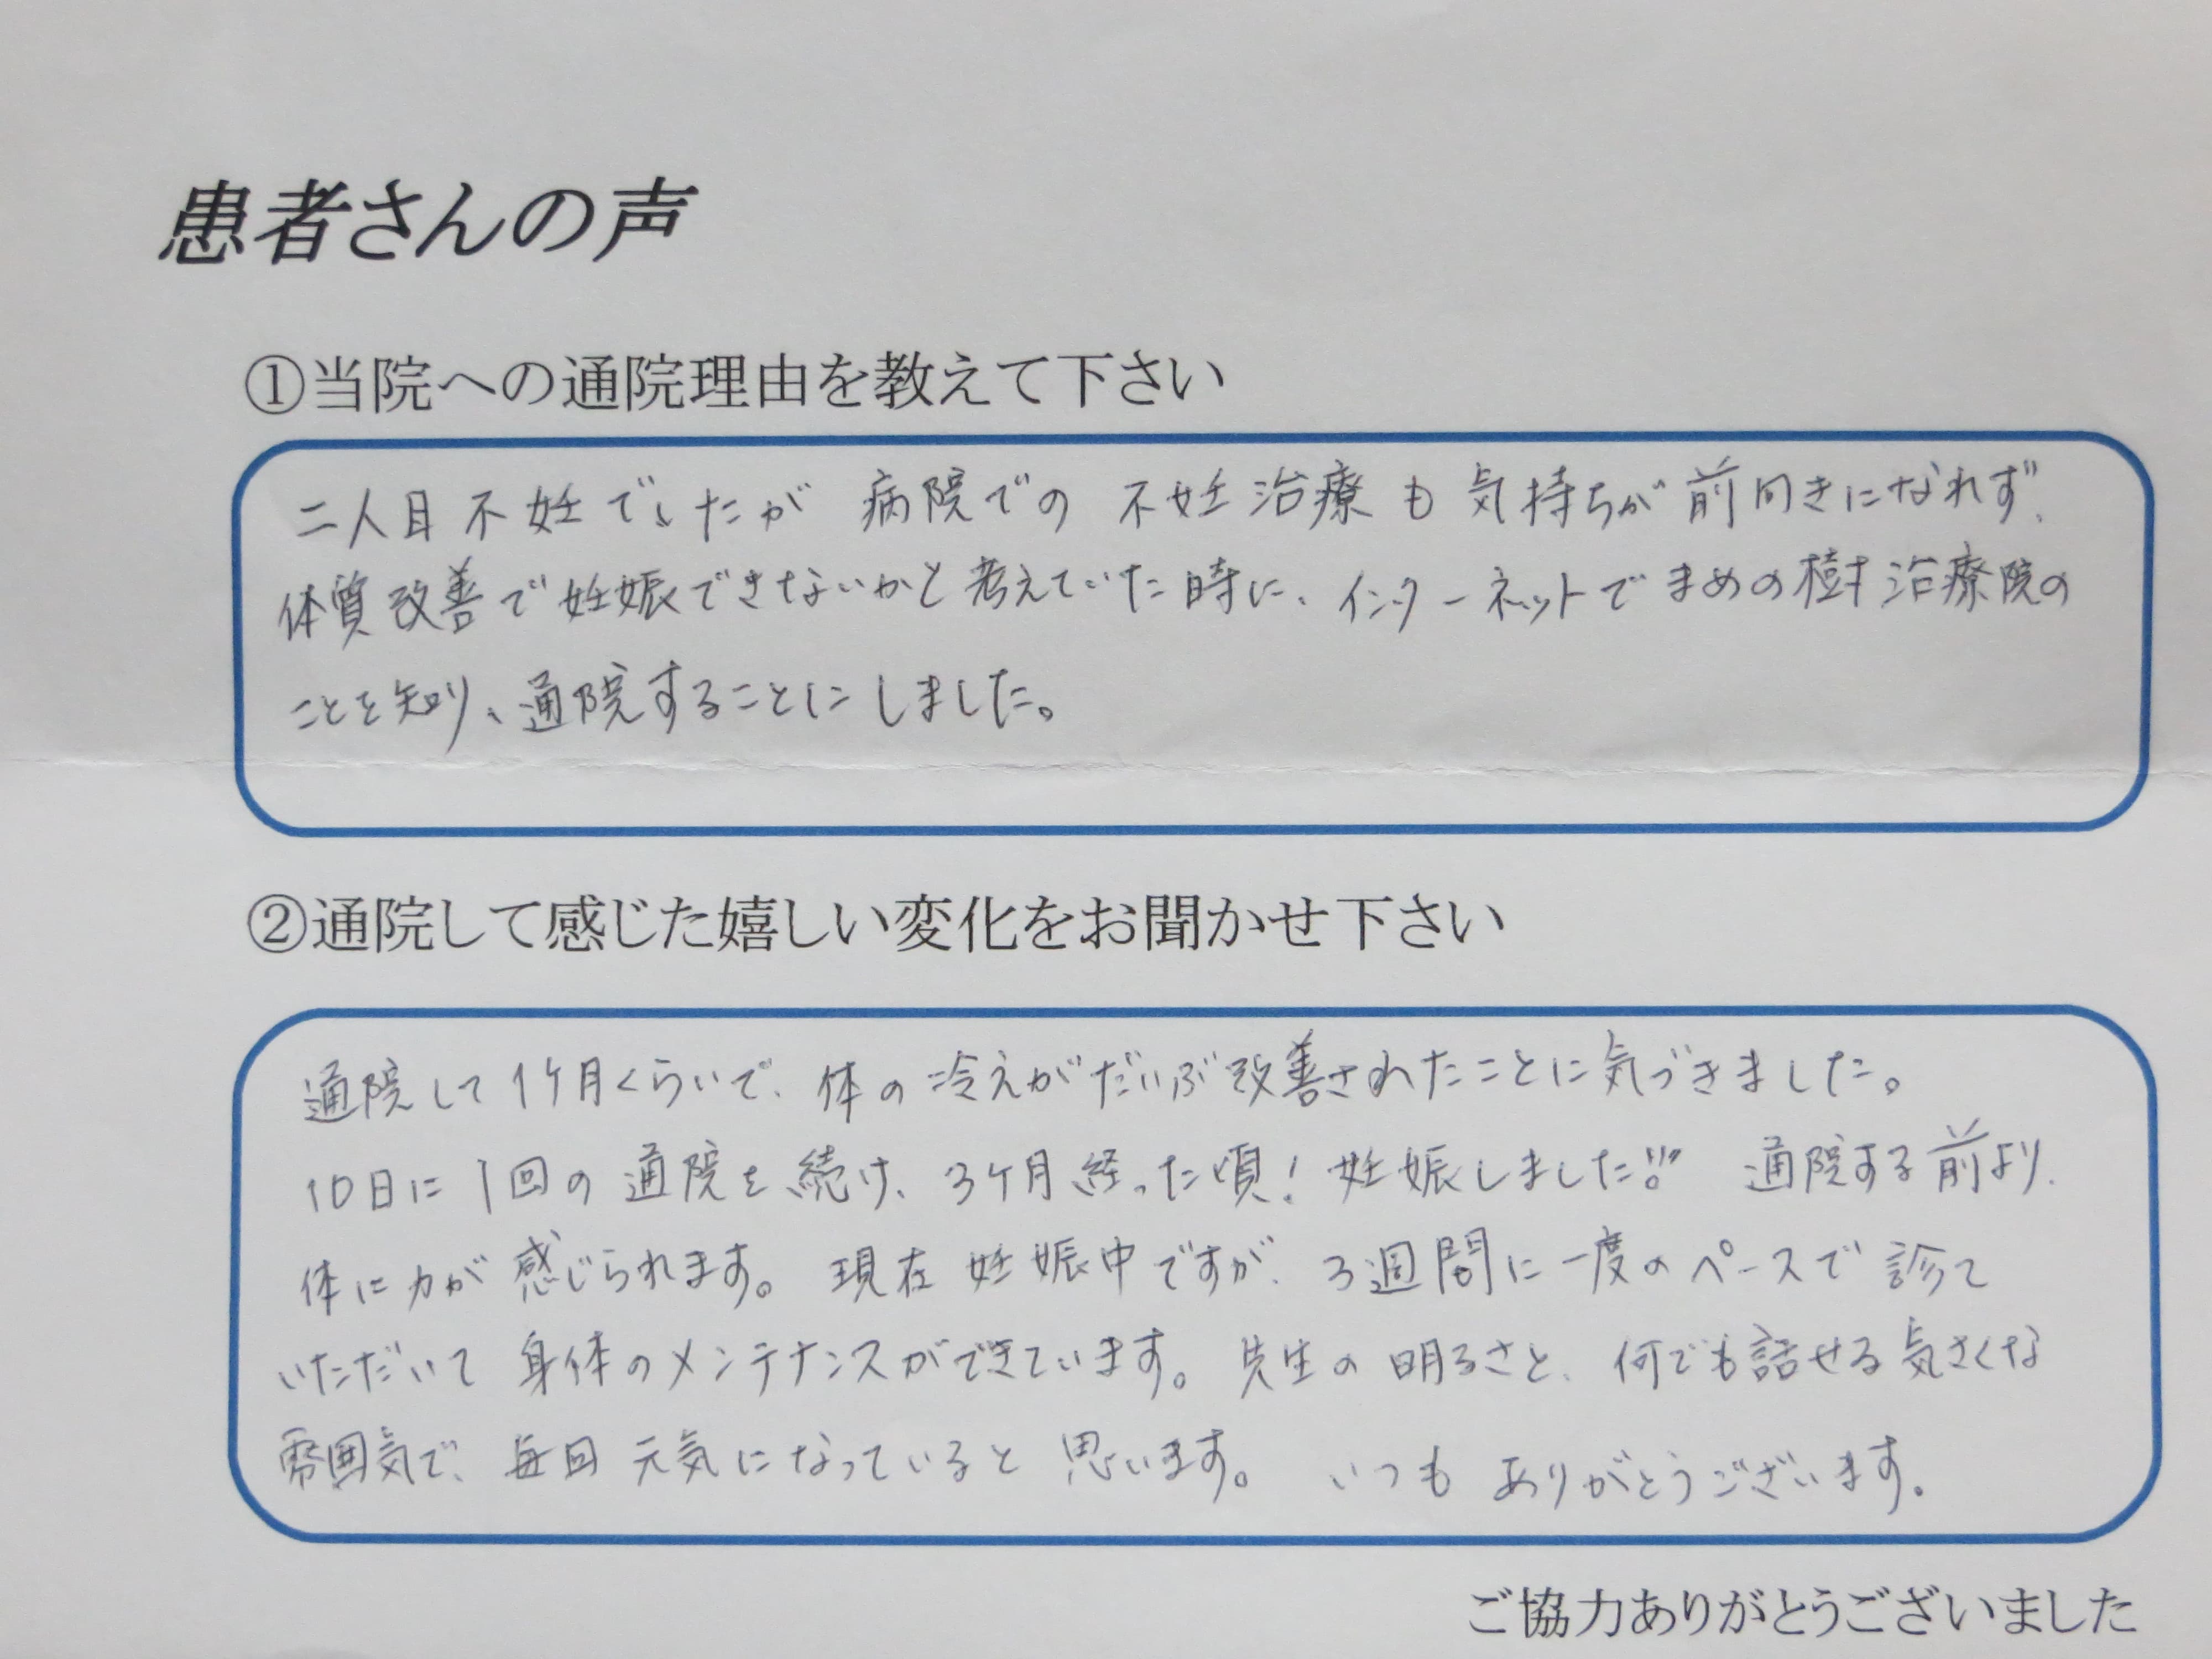 患者さんの声
①当院への通院理由を教えて下さい
二人目不妊でしたが 病院での 不妊治療も 気持ちが 前向きになれず、
体質改善で妊娠できないかと考えていた時に、インターネットでまめの樹治療院の
ことを知り、通院することにしました。
②通院して感じた嬉しい変化をお聞かせ下さい
通院して1ケ月くらいで、体の冷えがだいぶ改善されたことに気づきました。
10日に1回の通院を続け、3ケ月経った頃！妊娠しました!!! 通院する前より、
体に力が感じられます。現在 妊娠中ですが、3週間に一度のペースで診て
いただいて 身体のメンテナンスができています。先生の明るさと、何でも話せる気さくな
雰囲気で、毎回 元気になっていると 思います。 いつも ありがとうございます。
ご協力ありがとうございました